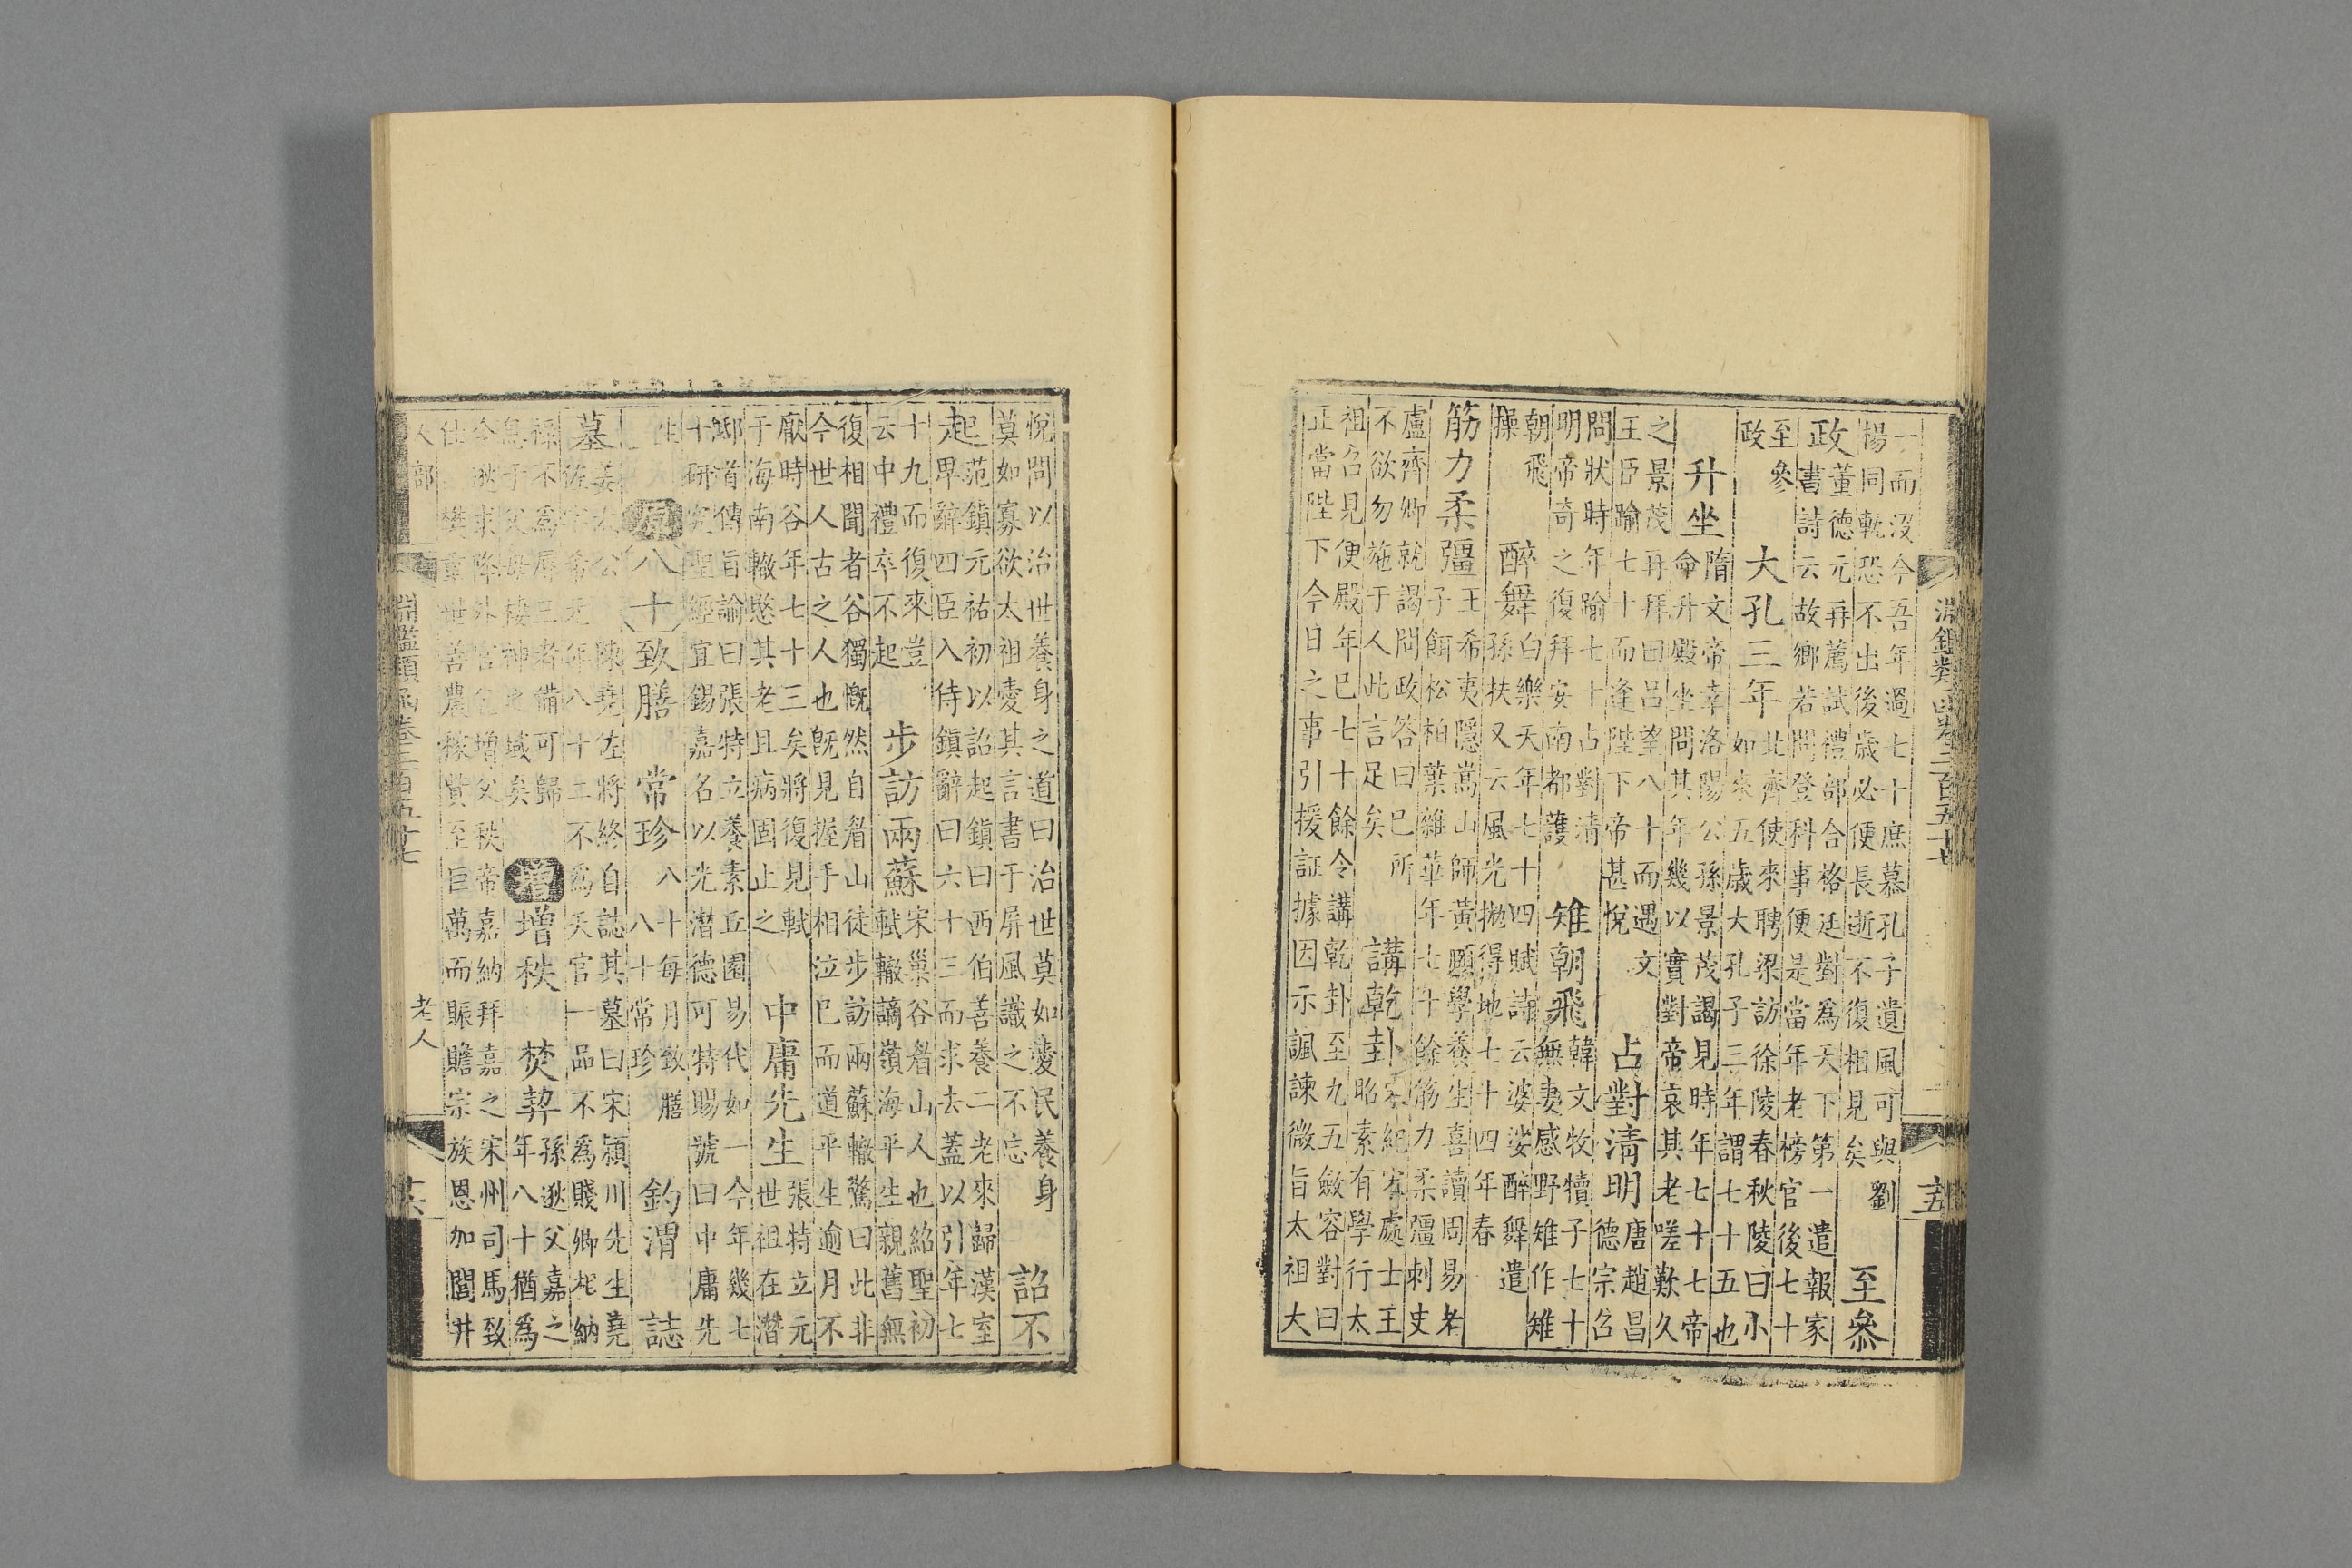 淵鑑類函卷二百五十七 十五
一而沒今吾年過七十庶慕孔子遺風可與劉
楊同軌恐不出後歲必便長逝不復相見矣
至參
政
董德元再薦試禮部合格廷對為天下第一遣報家
書詩云故鄉若問登科事便是當年老榜官後七十
至參
政
大孔三年
北齊使來聘梁訪徐陵春秋陵曰小
如來五歲大孔子三年謂七十五也
升坐
隋文帝幸洛陽公孫景茂謁見時年七十七帝
命升殿坐問其年幾以實對帝哀其老嗟歎久
之景茂再拜曰呂望八十而遇文
王臣踰七十而逢陛下帝甚悅
占對清明
唐趙昌
德宗召
問狀時年踰七十占對清
明帝奇之復拜安南都護
雉朝飛
韓文牧犢子七十
無妻感野雉作雉
朝飛
操
醉舞
白樂天年七十四賦詩云婆娑醉舞遣
孫扶又云風光拋得地七十四年春
筋力柔彊
王希夷隱嵩山師黃頤學養生喜讀周易老
子餌松柏葉雜華年七十餘筋力柔彊刺史
盧齊卿就謁問政答曰己所
不欲勿施于人此言足矣
講乾卦
宋紀 處士王
昭素有學行太
祖召見便殿年巳七十餘令講乾卦至九五斂容對曰
正當陛下今日之事引援証據因示諷諫微旨太祖大
悅問以治世養身之道曰治世莫如愛民養身
莫如寡欲太祖愛其言書于屏風識之不忘
詔不
起
范鎮元祐初以詔起鎮曰西伯善養二老來歸漢室
畀辭四臣入侍鎮辭曰六十三而求去蓋以引年七
十九而復來豈
云中禮卒不起
步訪兩蘇
宋巢谷眉山人也紹聖初
軾轍謫嶺海平生親舊無
復相聞者谷獨慨然自眉山徒步訪兩蘇轍驚曰此非
今世人古之人也既見握手相泣巳而道平生逾月不
厭時谷年七十三矣將復見軾
于海南轍愍其老且病固止之
中庸先生
張特立元
世祖在潛
邸首傳旨諭曰張特立養素丘園易代如一今年幾七
十研究聖經宜錫嘉名以光潛德可特賜號曰中庸先
生
原
八十致膳 常珍
八十每月致膳
八十常珍
釣渭
誌
墓
姜太公 陳堯佐將終自誌其墓曰宋潁川先生堯
佐字希元年八十二不為夭官一品不為賤卿相納
祿不為辱三者備可歸
息于父母棲神之域矣
增
增秩 焚券
孫逖父嘉之
年八十猶為
令逖求降外官乞增父秩帝嘉納拜嘉之宋州司馬致
仕 樊重世善農稼貲至巨萬而賑贍宗族恩加閭井
人部 淵鑑類函卷二百五十七 老人 十六